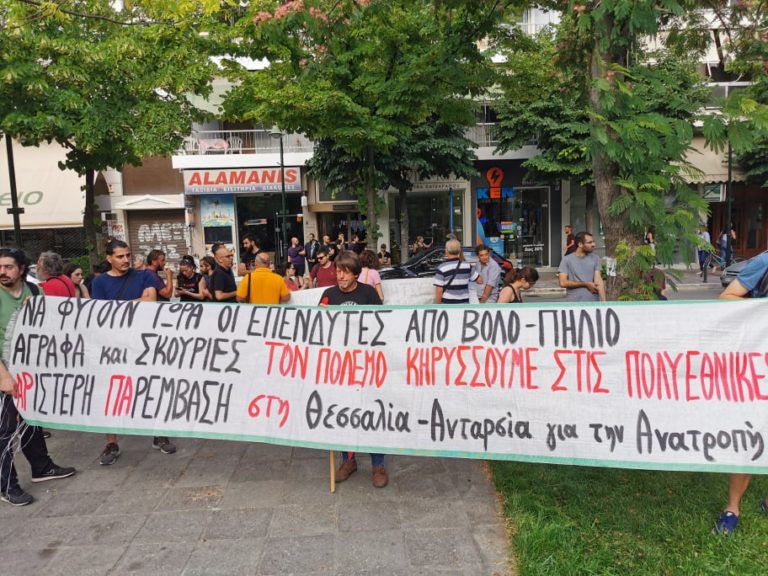 ALAMANIS
ΤΑΞΙΔΙΑ ΕΙΣΙΤΗΡΙΑ ΔΙΑΚΟΠΕΣ
ΚΕΝ
ΝΑ ΦΥΓΟΥΝ ΤΩΡΑ ΟΙ ΕΠΕΝΔΥΤΕΣ ΑΠΟ ΒΟΛΟ-ΠΗΛΙΟ
ΑΓΡΑΦΑ και ΣΚΟΥΡΙΕΣ ΤΟΝ ΠΟΛΕΜΟ ΚΗΡΥΣΣΟΥΜΕ ΣΤΙΣ ΠΟΛΥΕΘΝΙΚΕΣ
ΑΡΙΣΤΕΡΗ ΠΑΡΕΜΒΑΣΗ στη Θεσσαλία - Ανταρσία για την Ανατροπή